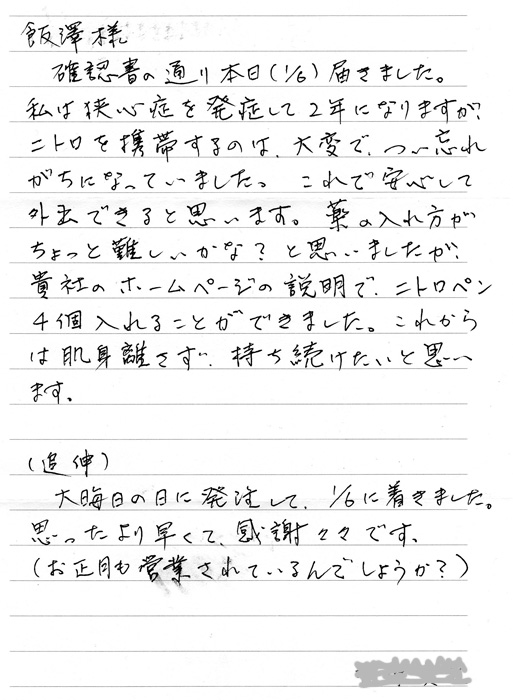 飯澤様
確認書の通り本日(1/6)届きました。
私は狭心症を発症して2年になりますが、
ニトロを携帯するのは、大変で、つい忘れ
がちになっていました。これで安心して
外出できると思います。薬の入れ方が
ちょっと難しいかな?と思いましたが、
貴社のホームページの説明で、ニトロペン
4個入れることができました。これから
は肌身離さず、持ち続けたいと思い
ます。
(追伸)
大晦日の日に発注して、1/6に着きました。
思ったより早くて、感謝々々です。
(お正月も営業されているんでしょうか?)